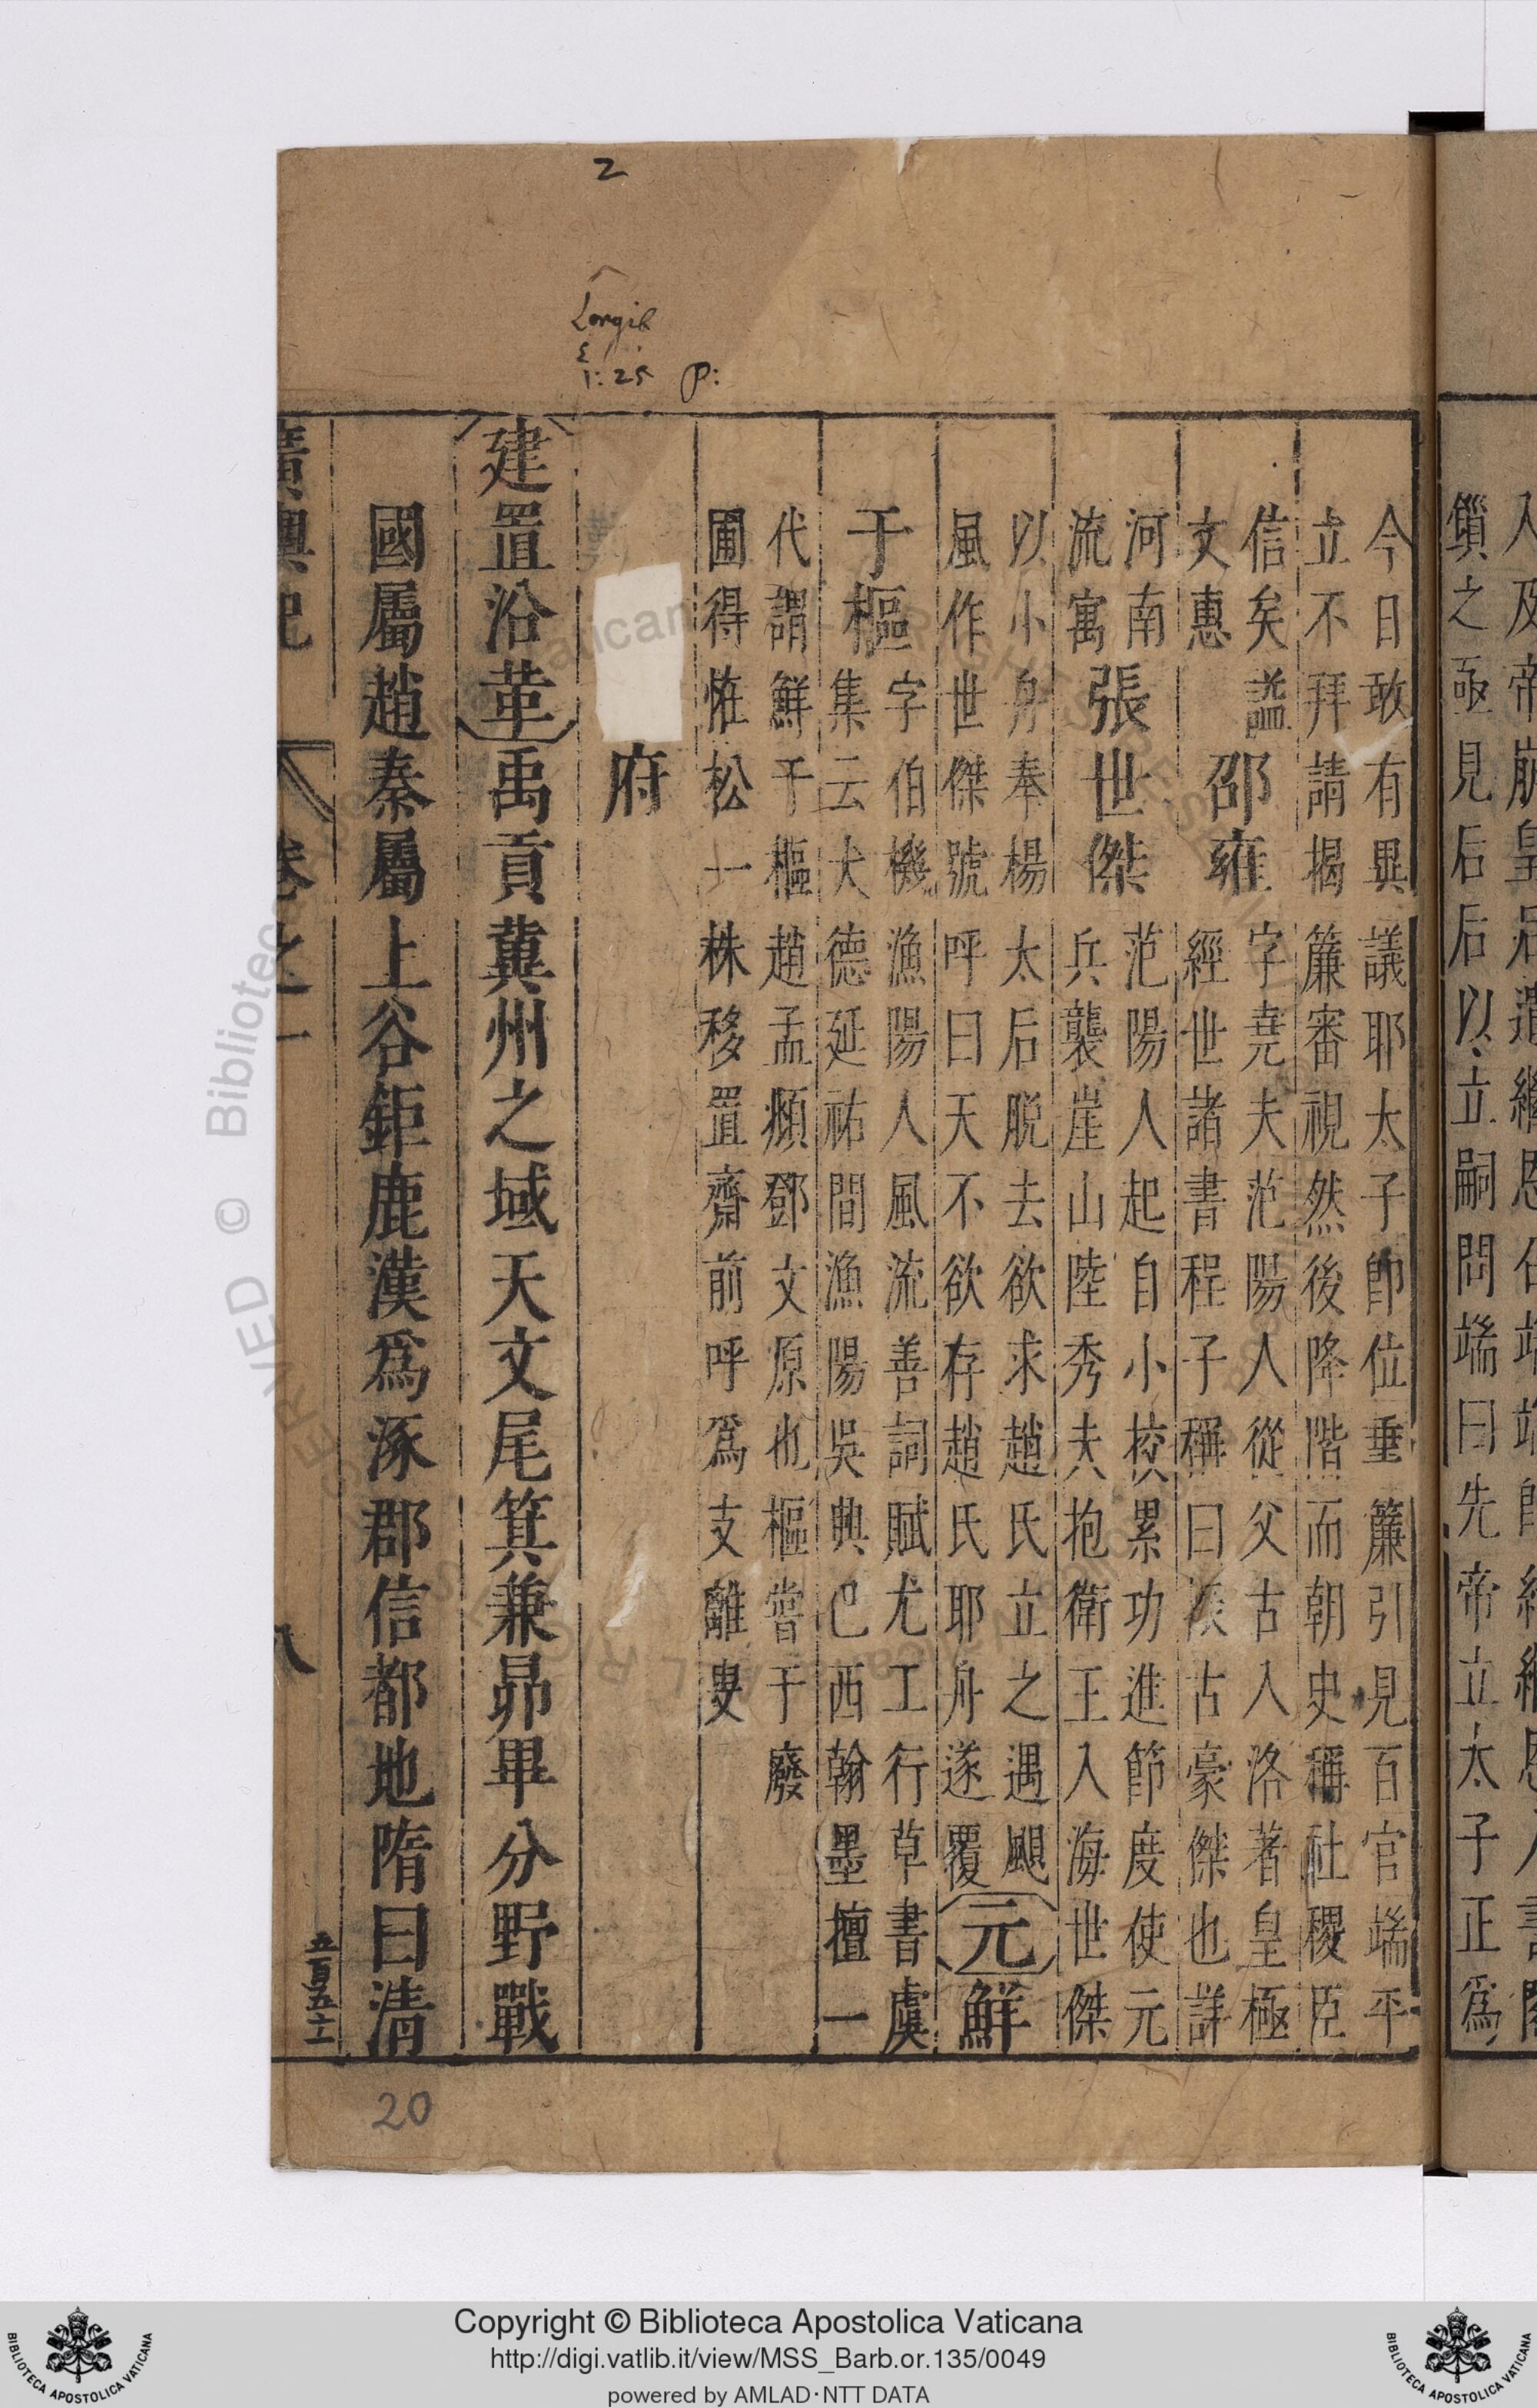 入及帝崩皇后遣繼恩召端端
鎻之亟見后后以立嗣問端曰先帝立太子正爲
今日敢有異議耶太子卽位垂簾引見百官端平
立不拜請揭簾審視然後降階而朝史稱社稷臣
信矣謚
文惠
邵雍
字堯夫范陽人從父古入洛著皇極
經世諸書程子稱曰振古豪傑也詳
河南
流寓
張世傑
范陽人起自小挍累功進節度使元
兵襲崖山陸秀夫抱衛王入海世傑
以小舟奉楊太后脫去欲求趙氏立之遇颶
風作世傑號呼曰天不欲存趙氏耶舟遂覆
元 鮮
于樞
字伯機漁陽人風流善詞賦尤工行草書虞
集云大德延祐間漁陽吳興巴西翰墨擅一
代謂鮮于樞趙孟頫鄧文原也樞嘗于廢
圃得恠松一株移置齋前呼爲支離叟
府
建置沿革 禹貢冀州之域天文尾箕兼昴畢分野戰
國屬趙秦屬上谷鉅鹿漢爲涿郡信都地隋曰清
廣輿記 卷之一 八
2
Longit
1:25 P:
20
Copyright © Biblioteca Apostolica Vaticana
http://digi.vatlib.it/view/MSS_Barb.or.135/0049
powered by AMLAD·NTT DATA
BIBLIOTECA APOSTOLICA VATICANA
BIBLIOTECA APOSTOLICA VATICANA